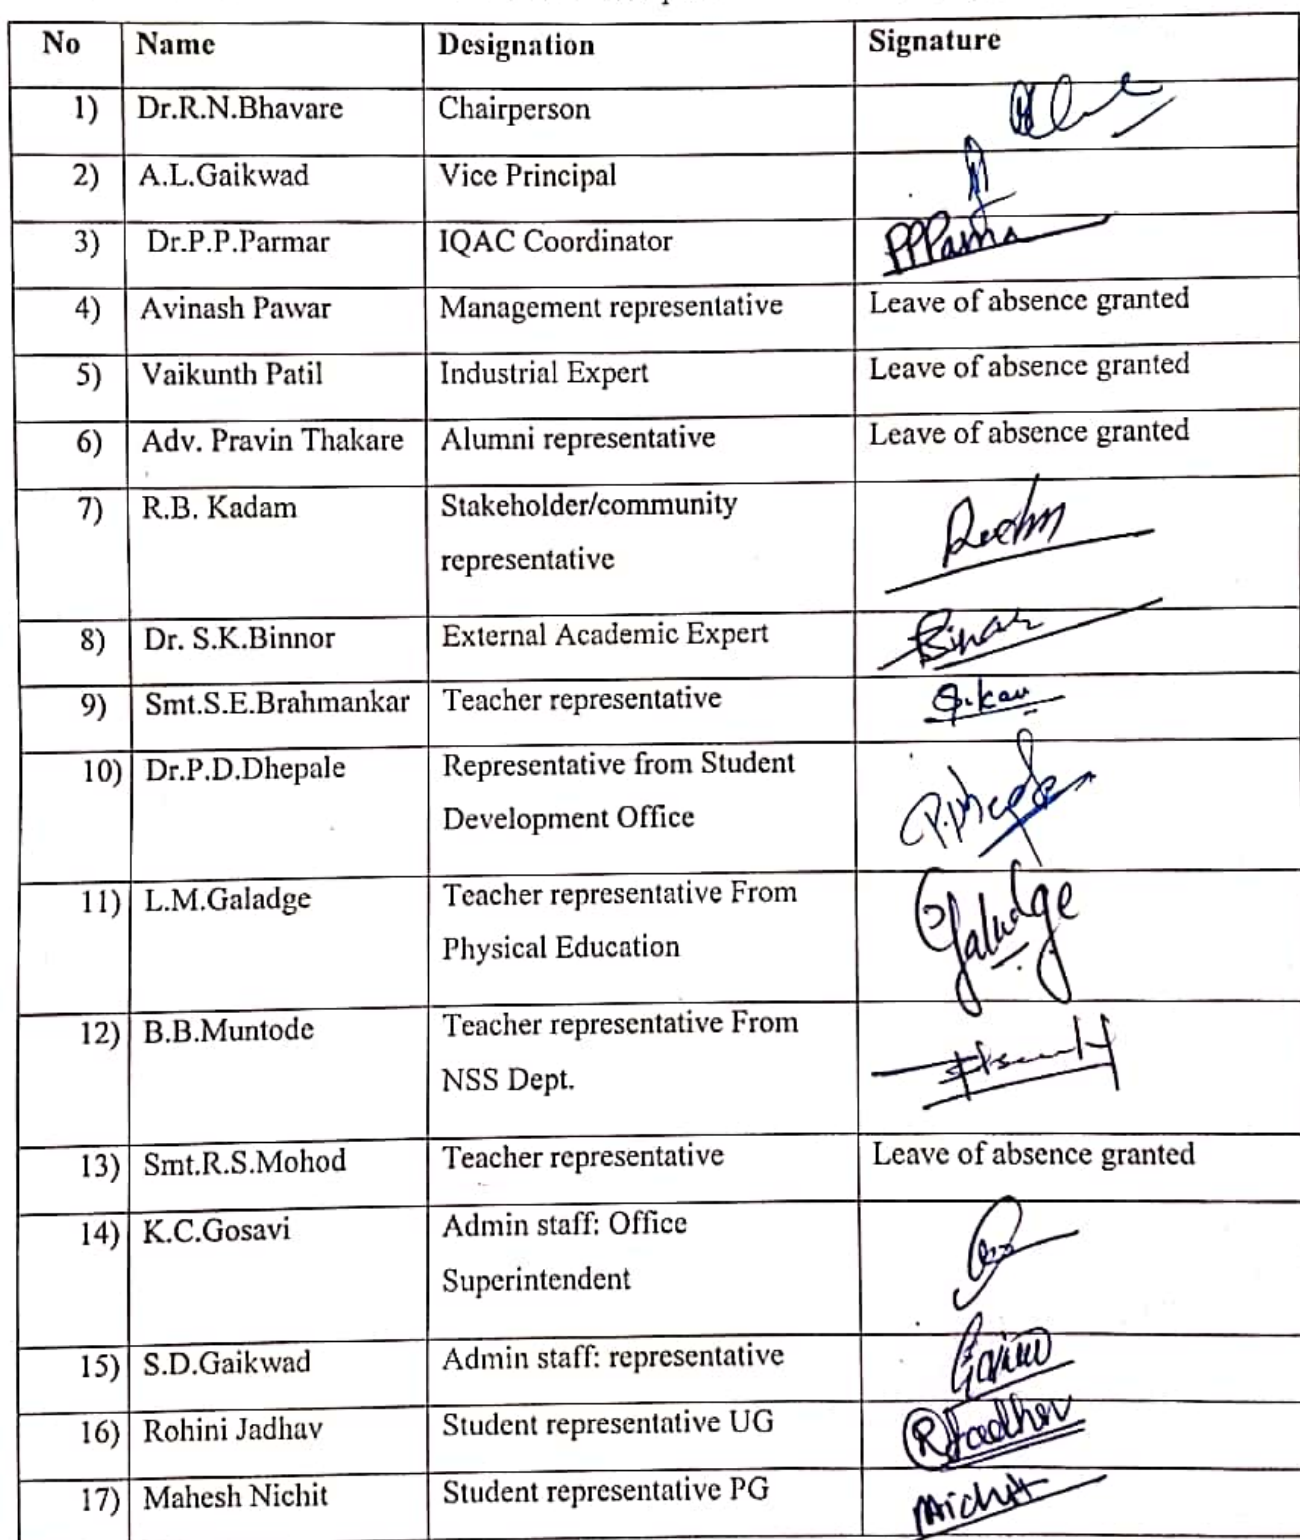 No Name Designation Signature
1) Dr.R.N.Bhavare Chairperson
2) A.L.Gaikwad Vice Principal
3) Dr.P.P.Parmar IQAC Coordinator PPParma
4) Avinash Pawar Management representative Leave of absence granted
5) Vaikunth Patil Industrial Expert Leave of absence granted
6) Adv. Pravin Thakare Alumni representative Leave of absence granted
7) R.B. Kadam Stakeholder/community
representative
8) Dr. S.K.Binnor External Academic Expert
9) Smt.S.E.Brahmankar Teacher representative
10) Dr.P.D.Dhepale Representative from Student
Development Office
11) L.M.Galadge Teacher representative From Galadge
Physical Education
12) B.B.Muntode Teacher representative From
NSS Dept.
13) Smt.R.S.Mohod Teacher representative Leave of absence granted
14) K.C.Gosavi Admin staff: Office
Superintendent
15) S.D.Gaikwad Admin staff: representative
16) Rohini Jadhav Student representative UG RJadhav
17) Mahesh Nichit Student representative PG Nichit